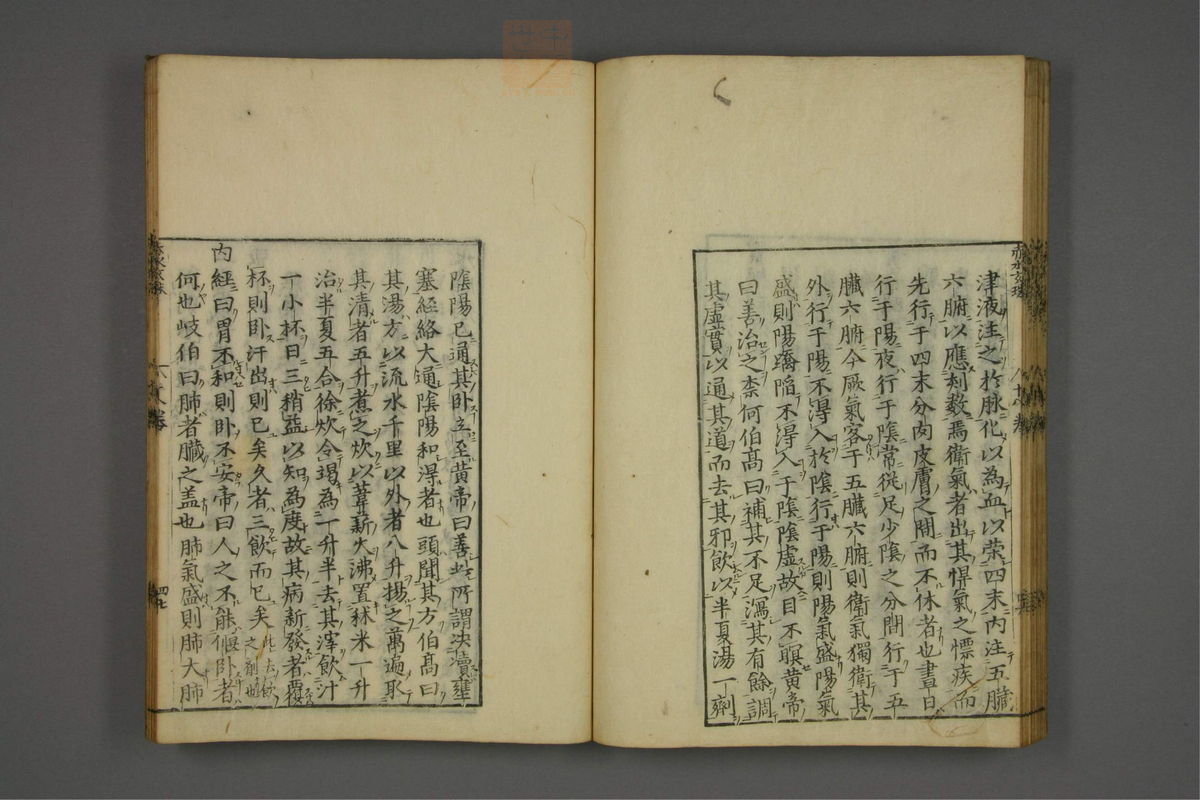 津液注之於脉化以為血以荣四末内注五臓
六腑以應刻数焉衛氣者出其悍氣之慓疾而
先行于四末分肉皮膚之間而不休者也晝日
行于陽夜行于陰常従足少陰之分間行于五
臓六腑今厥氣客于五臓六腑則衛氣獨衛其
外行于陽不得入於陰行于陽則陽氣盛陽氣
盛則陽蹻陷不得入于陰陰虚故目不瞑黄帝
曰善治之柰何伯髙曰補其不足瀉其有餘調
其虚實以通其道而去其邪飲以半夏湯一劑
陰陽已通其卧立至黄帝曰善此所謂决瀆壅
塞經絡大通陰陽和得者也頭聞其方伯髙曰
其湯方以流水千里以外者八升揚之萬遍取
其清者五升煮之炊以葦薪火沸置秫米一升
治半夏五合徐炊令竭為一升半去其滓飲汁
一小杯日三稍益以知為度故其病新發者覆
杯則卧汗出則已矣久者三飲而已矣
内經曰胃不和則卧不安帝曰人之不能偃卧者
何也岐伯曰肺者臓之盖也肺氣盛則肺大肺